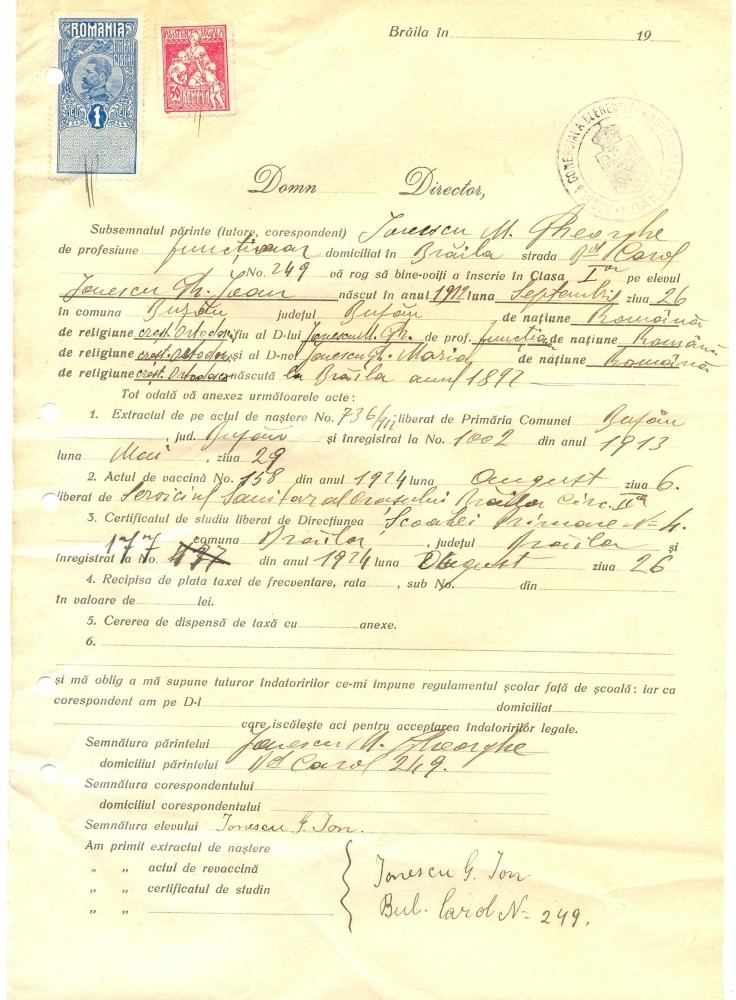 ROMANIA
TIMBRU FISCAL
1
LEU
50 ROMANIA
Brăila în 19
COMERCIALA ELEMENTARA
Domn Director,
Subsemnatul părinte (tutore, corespondent) Ionescu M. Gheorghe
de profesiune funcționar domiciliat în Brăila strada Bul Carol
No. 249 vă rog să bine-voiți a înscrie în Clasa I pe elevul
Ionescu Gh. Ioan născut în anul 1912 luna Septembrie ziua 26
în comuna Buzău județul Buzău de națiune Română
de religiune crest. Ortodox fiu al D-lui Ionescu M. Gh. de prof. de națiune Română
de religiune crest. Ortodox și al D-nei Ionescu Gh. Maria de națiune Română
de religiune crest. Ortodoxă născută la Brăila anul 1897
Tot odată vă anexez următoarele acte:
1. Extractul de pe actul de naștere No. 736 liberat de Primăria Comunei Buzău
, jud. Buzău și înregistrat la No. 1002 din anul 1913
luna Mai, ziua 29
2. Actul de vaccină No. 158 din anul 1924 luna August ziua 6.
liberat de Serviciul Sanitar al Orașului Brăila Circ. II
3. Certificatul de studiu liberat de Direcțiunea Școalei Primare N= 4.
comuna Brăila, județul Brăila și
înregistrat la No. 177 din anul 1924 luna August ziua 26
4. Recipisa de plata taxei de frecventare, rata , sub No. din
în valoare de lei.
5. Cererea de dispensă de taxă cu anexe.
6.
și mă oblig a mă supune tuturor îndatoririlor ce-mi impune regulamentul școlar față de școală: iar ca
corespondent am pe D-l domiciliat
care iscălește aci pentru acceptarea îndatoririlor legale.
Semnătura părintelui Ionescu M. Gheorghe
domiciliul părintelui Bd Carol 249.
Semnătura corespondentului
domiciliul corespondentului
Semnătura elevului Ionescu G. Ion.
Am primit extractul de naștere
„ „ actul de revaccină
„ „ certificatul de studin
„ „
Ionescu G. Ion
Bul. Carol N= 249.